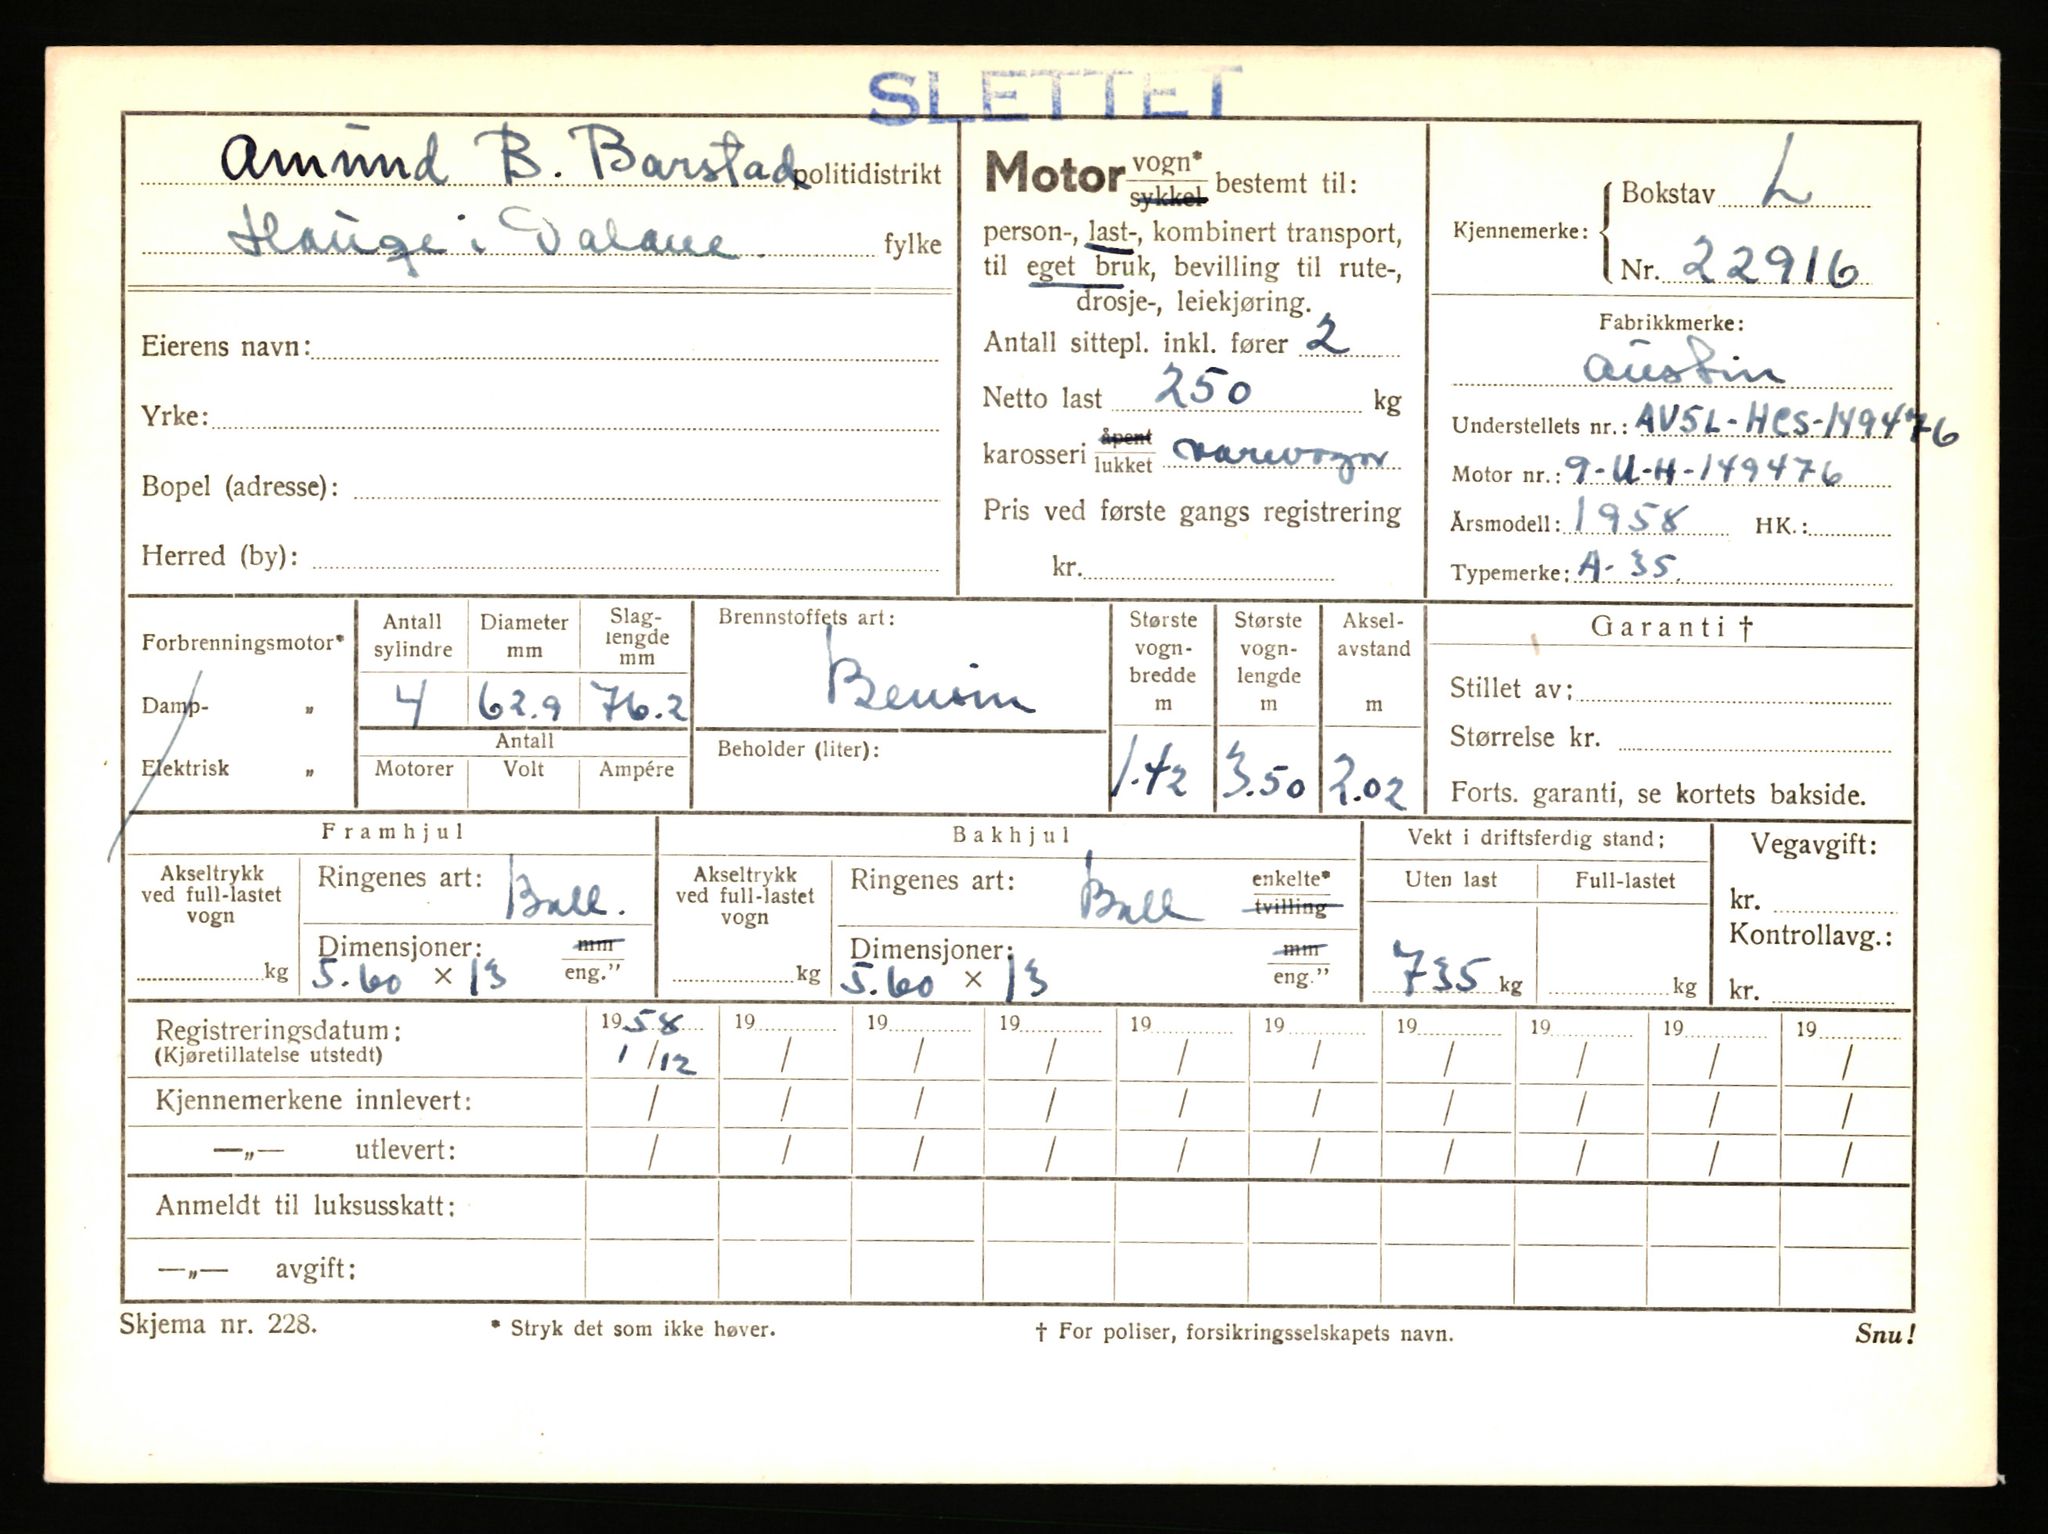 SLETTET
Amund B. Barstad politidistrikt
Hauge i Dalane. fylke
Eierens navn:
Yrke:
Bopel (adresse):
Herred (by):
Motor vogn* sykkel bestemt til:
person-, last-, kombinert transport,
til eget bruk, bevilling til rute-,
drosje-, leiekjøring.
Antall sittepl. inkl. fører 2
Netto last 250 kg
karosseri åpent lukket varevogn
Pris ved første gangs registrering
kr.
Kjennemerke: Bokstav L
Nr. 22916
Fabrikkmerke:
Austin
Understellets nr.: AV5L-HCS-149476
Motor nr.: 9-U-H-149476
Årsmodell: 1958 HK.:
Typemerke: A-35.
Forbrenningsmotor*
Damp- „
Elektrisk „
Antall sylindre
4
Diameter mm
62.9
Slag-lengde mm
76.2
Antall
Motorer Volt Ampére
Brennstoffets art:
Bensin
Beholder (liter):
Største vogn-bredde m
1.42
Største vogn-lengde m
3.50
Aksel-avstand m
2.02
Garanti †
Stillet av:
Størrelse kr.
Forts. garanti, se kortets bakside.
Framhjul
Akseltrykk ved full-lastet vogn
kg
Ringenes art: Ball.
Dimensjoner: mm eng.”
5.60 × 13
Bakhjul
Akseltrykk ved full-lastet vogn
kg
Ringenes art: Ball enkelte* tvilling
Dimensjoner: mm eng.”
5.60 × 13
Vekt i driftsferdig stand:
Uten last Full-lastet
735 kg kg
Vegavgift:
kr.
Kontrollavg.:
kr.
Registreringsdatum: 1958 19 19 19 19 19 19 19 19 19
(Kjøretillatelse utstedt) 1/12 / / / / / / / / /
Kjennemerkene innlevert: / / / / / / / / / /
—„— utlevert: / / / / / / / / / /
Anmeldt til luksusskatt:
—„— avgift:
Skjema nr. 228. * Stryk det som ikke høver. † For poliser, forsikringsselskapets navn. Snu!